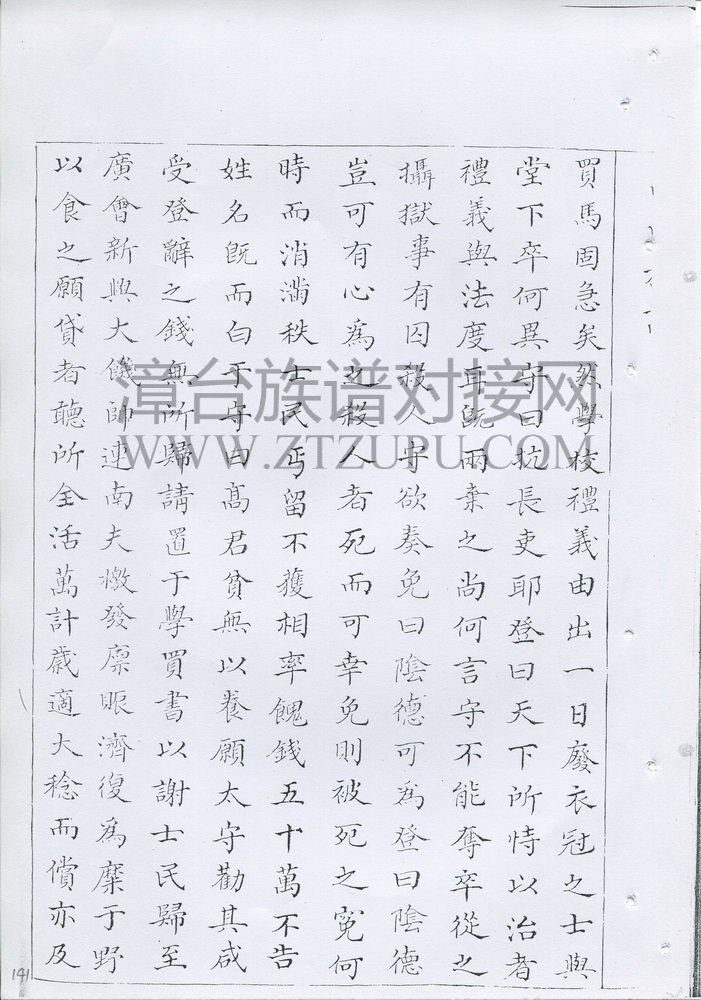 買馬固急矣然學校禮義由出一日廢衣冠之士與
堂下卒何異守曰抗長吏耶登曰天下所恃以治者
禮義與法度耳既兩棄之尚何言守不能奪卒從之
攝獄事有囚殺人守欲奏免曰陰德可為登曰陰德
豈可有心為之殺人者死而可幸免則被死之冤何
時而消滿秩士民丐留不獲相率餽錢五十萬不告
姓名既而白于守曰高君貧無以養願太守勸其咸
受登辭之錢無所歸請置于學買書以謝士民歸至
廣會新興大饑帥連南夫檄發廩賑濟復為糜于野
以食之願貸者聽所全活萬計歲適大稔而償亦及
141
漳台族谱对接网
WWW.ZTZUPU.COM